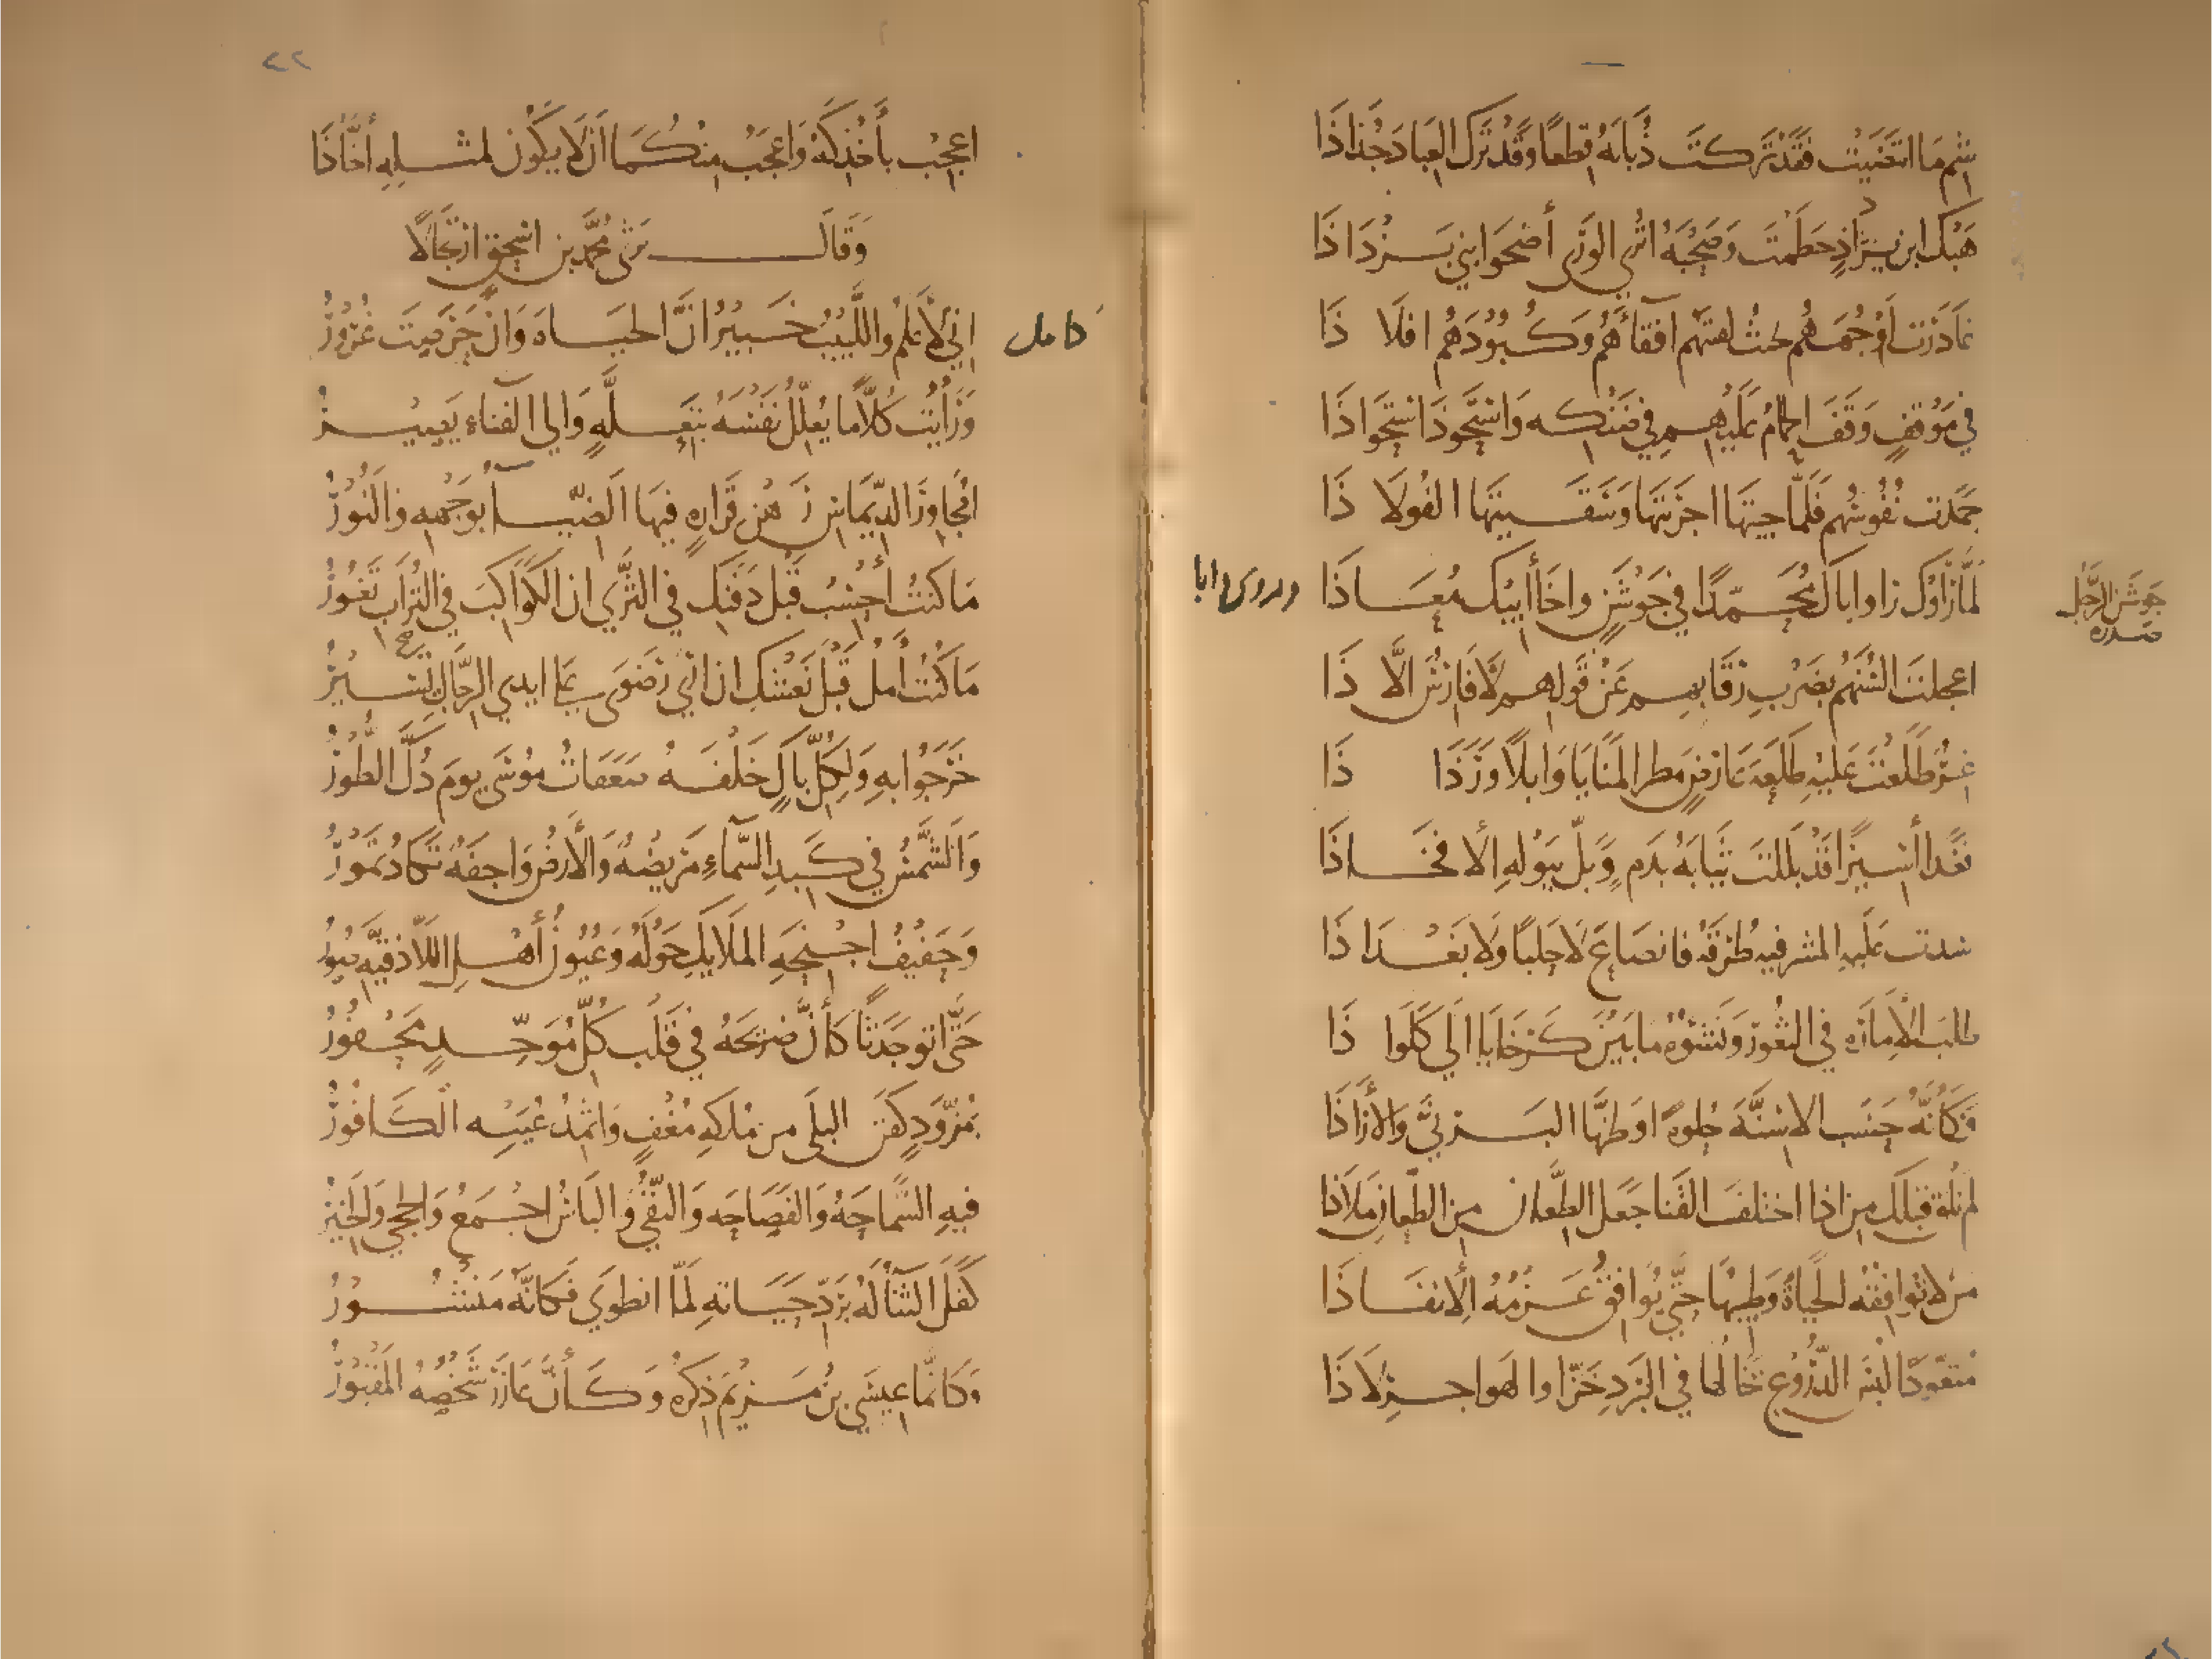 شِم مَا انتَضَيْتَ فَقَدْ تَرَكْتَ ذُبَابَهُ قِطَعًا وَقَدْ تَرَكَ العِبَادَ جُذَاذَا
هَبْكَ ابنَ يَزْدَاذٍ حَطَمْتَ وَصَحْبَهُ اتُرى الوَرَى أَضحَوا بني يَزْدَاذَا
غَادَرْتَ أَوْجُهَهُم بحيثُ لقيتَهُم أقفاءَهُم وَكُبُوْدَهُم افلاذَا
في مَوْقفٍ وَقَفَ الحِمَامُ عَلَيْهِم في ضَنْكِه وَاسْتَحْوَذَ استِحْوَاذَا
جَمَدَت نُفُوسُهُم فَلَمَّا جِيتَهَا اجرَيْتَهَا وَسَقَيْتَهَا الفُولاذَا
لمَّا رَأَوْكَ رَاوا اباكَ مُحَمّدًا في جَوْشَنٍ واخَا أَبِيْكَ مُعَاذَا
وروى ابا
جَوشَن الرَّجُل
صدره
اعجلتَ السُنَهُم بضَرْبِ رِقَابِهِم عَنْ قَولِهِم لَا فَارِسٌ الَّا ذَا
غِرٌّ طَلَعْتَ عَلَيْهِ طَلعَةَ عَارِضٍ مَطر المَنَايَا وَابلًا وَرَذَاذَا
فَغَدا أسِيْرًا قَدْ بَلَلتَ ثِيَابَهُ بِدَمٍ وَبَلَّ بِبَوْلِهِ الأفخَاذَا
سدت عَلَيهِ المشرفيه طُرْقَهُ فانصَاعَ لَا حَلَبًا وَلا بَغْدَاذَا
طلبَ الأمَارَه في الثُغُورِ وَنَشْوُهُ مَا بَيْنَ كَرْخَايَا الَى كَلْوَاذَا
فَكَأَنَّهُ حَسِبَ الاسِنَّةَ حُلْوَةً اوظَنَّهَا البَرْنيَّ وَالأَزَاذَا
لم يَلقَ قَبلَكَ مِن اذا اختلفَ القَنا جَعَل الطِّعَانَ مِن الطِّعانِ مَلاَذَا
مَنْ لا تُوَافِقُهُ الحَيَاةُ وَطِيبُهَا حَتَّى يُوَافِقَ عَزْمُهُ الِانفَاذَا
مُتَعَوِّدًا لُبْسَ الدُّرُوعِ يَخَالُها في البَرْدِ خَزًّا والهَواجِرِ لَاذَا
٢٢
اعجِبْ بأَخْذِكَهُ وَاعجَبُ مِنْكُمَا اَنْ لَا يَكُون لمثلِهِ أخَّاذَا
وَقَالَ يَرْثى مُحَمَّد بن اسْحق ارتجَالًا
كامل
اني لأَعْلمُ واللَّبِيْبُ خَبِيْرُ انَّ الحيَاه وَانْ حَرَصتَ غُرُوْرُ
وَرَأَيْتُ كُلًّا مَا يُعَلِّلُ نَفْسَهُ بتَعِلَّةٍ وَالى الفناء يَصِيْرُ
امُجَاوِرَ الدِّيْمَاسِ رَهْنَ قَرَارةٍ فِيهَا الضّيَآ بوَجْهِهِ وَالنُّوْرُ
مَا كنتُ أَحْسِبُ قَبْلَ دَفْنِكَ في الثَّرَى ان الكَوَاكِبَ في التُرَابِ تَغُورُ
مَا كُنْتُ آمُلُ قَبْلَ نَعشكَ ان ارَى رَضْوَى على ايدي الرِّجَال تَسِيْرُ
خَرَجُوا بهِ وَلِكُلِّ بَاكٍ خَلْفَهُ صَعَقَاتُ مُوْسَى يومَ دُكَّ الطُّوْرُ
وَالشَّمْسُ في كَبِدِ السَّمَآءِ مَرِيْضَهٌ وَالأَرضُ وَاجِفَهٌ تَكَادُ تَمُوْرُ
وَحَفِيْفُ اجْنِحَهِ المَلَايِكِ حَوْلَهُ وَعُيُونُ أهْلِ اللَّاذقيَّهِ صُوْرُ
حَتَّى اتَو جَدَثًا كَأَنَّ ضَرِيْحَهُ في قَلْبِ كُلِّ مُوَحِّدٍ مَحْفُورُ
بمُزَوَّدٍ كَفَنَ البِلَى مِن مُلكِهِ مُغْفٍ وَاثْمِدُ عَيْنِه الكَافُوْرُ
فيهِ السَّمَاحَهُ وَالفَصَاحَه وَالتُّقَى وَالبَأسُ اجْمَعُ وَالحِجى وَالخِيْرُ
كَفَلَ الثَنَآ لَهُ بِرَدِّ حَيَاتِهِ لَمَّا انطَوَى فَكَأَنَّهُ مَنْشُوْرُ
وَكَانَّما عِيسَى بنُ مَرْيَمَ ذِكْرُهُ وَكَأَنَّ عَازَرَ شَخْصُهُ المَقْبُوْرُ